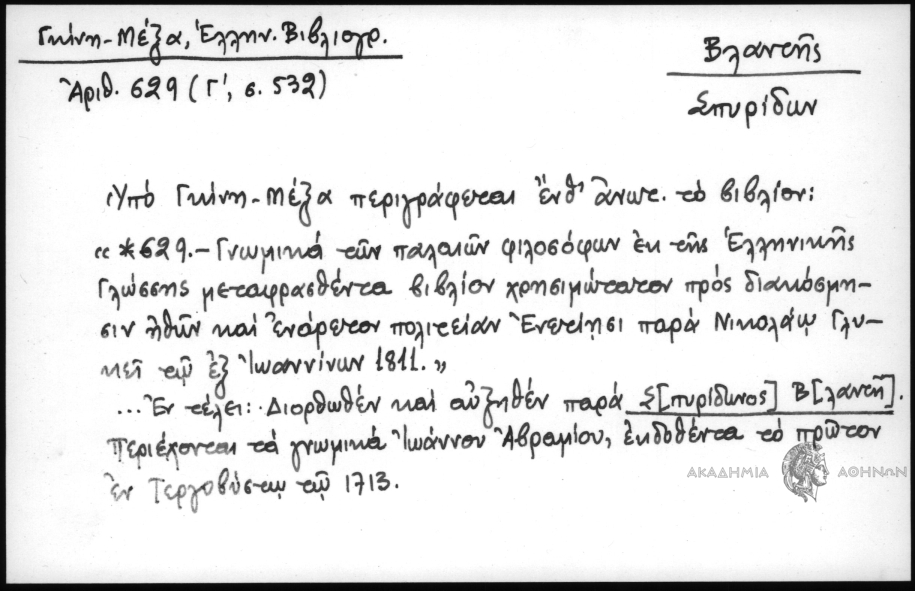 Γκίνη-Μέξα, Ἑλλην. Βιβλιογρ.
Ἀριθ. 629 (Γ', σ. 532)
Βλαντῆς
Σπυρίδων
Ὑπό Γκίνη-Μέξα περιγράφεται ἔνθ' ἄνωτ. τό βιβλίον:
« *629.- Γνωμικά τῶν παλαιῶν φιλοσόφων ἐκ τῆς Ἑλληνικῆς
Γλώσσης μεταφρασθέντα βιβλίον χρησιμώτατον πρός διακόσμη-
σιν ἠθῶν καί ἐνάρετον πολιτείαν Ἐνετίῃσι παρά Νικολάῳ Γλυ-
κεῖ τῷ ἐξ Ἰωαννίνων 1811. »
...Ἐν τέλει: Διορθωθέν καί αὐξηθέν παρά Σ[πυρίδωνος] Β[λαντῆ].
Περιέχονται τά γνωμικά Ἰωάννου Ἀβραμίου, ἐκδοθέντα τό πρῶτον
ἐν Τεργοβύστῳ τῷ 1713.
ΑΚΑΔΗΜΙΑ ΑΘΗΝΩΝ